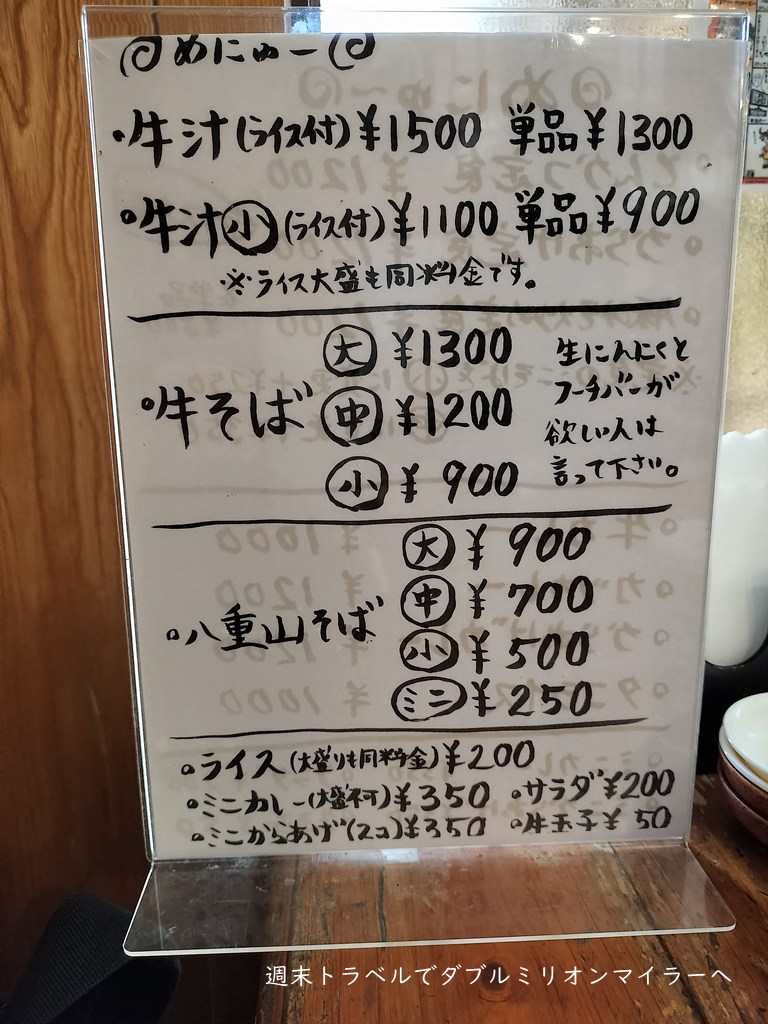 めにゅー
・牛汁(ライス付)¥1500 単品¥1300
・牛汁㊥小(ライス付)¥1100 単品¥900
※ライス大盛も同料金です。
大 ¥1300
・牛そば 中 ¥1200
小 ¥900
生にんにくと
フーチバーが
欲しい人は
言って下さい。
大 ¥900
中 ¥700
・八重山そば
小 ¥500
ミニ ¥250
・ライス(大盛りも同料金)¥200
・ミニカレー(大盛不可)¥350 ・サラダ¥200
・ミニからあげ(2コ)¥350 ・生玉子¥50
週末トラベルでダブルミリオンマイラーへ